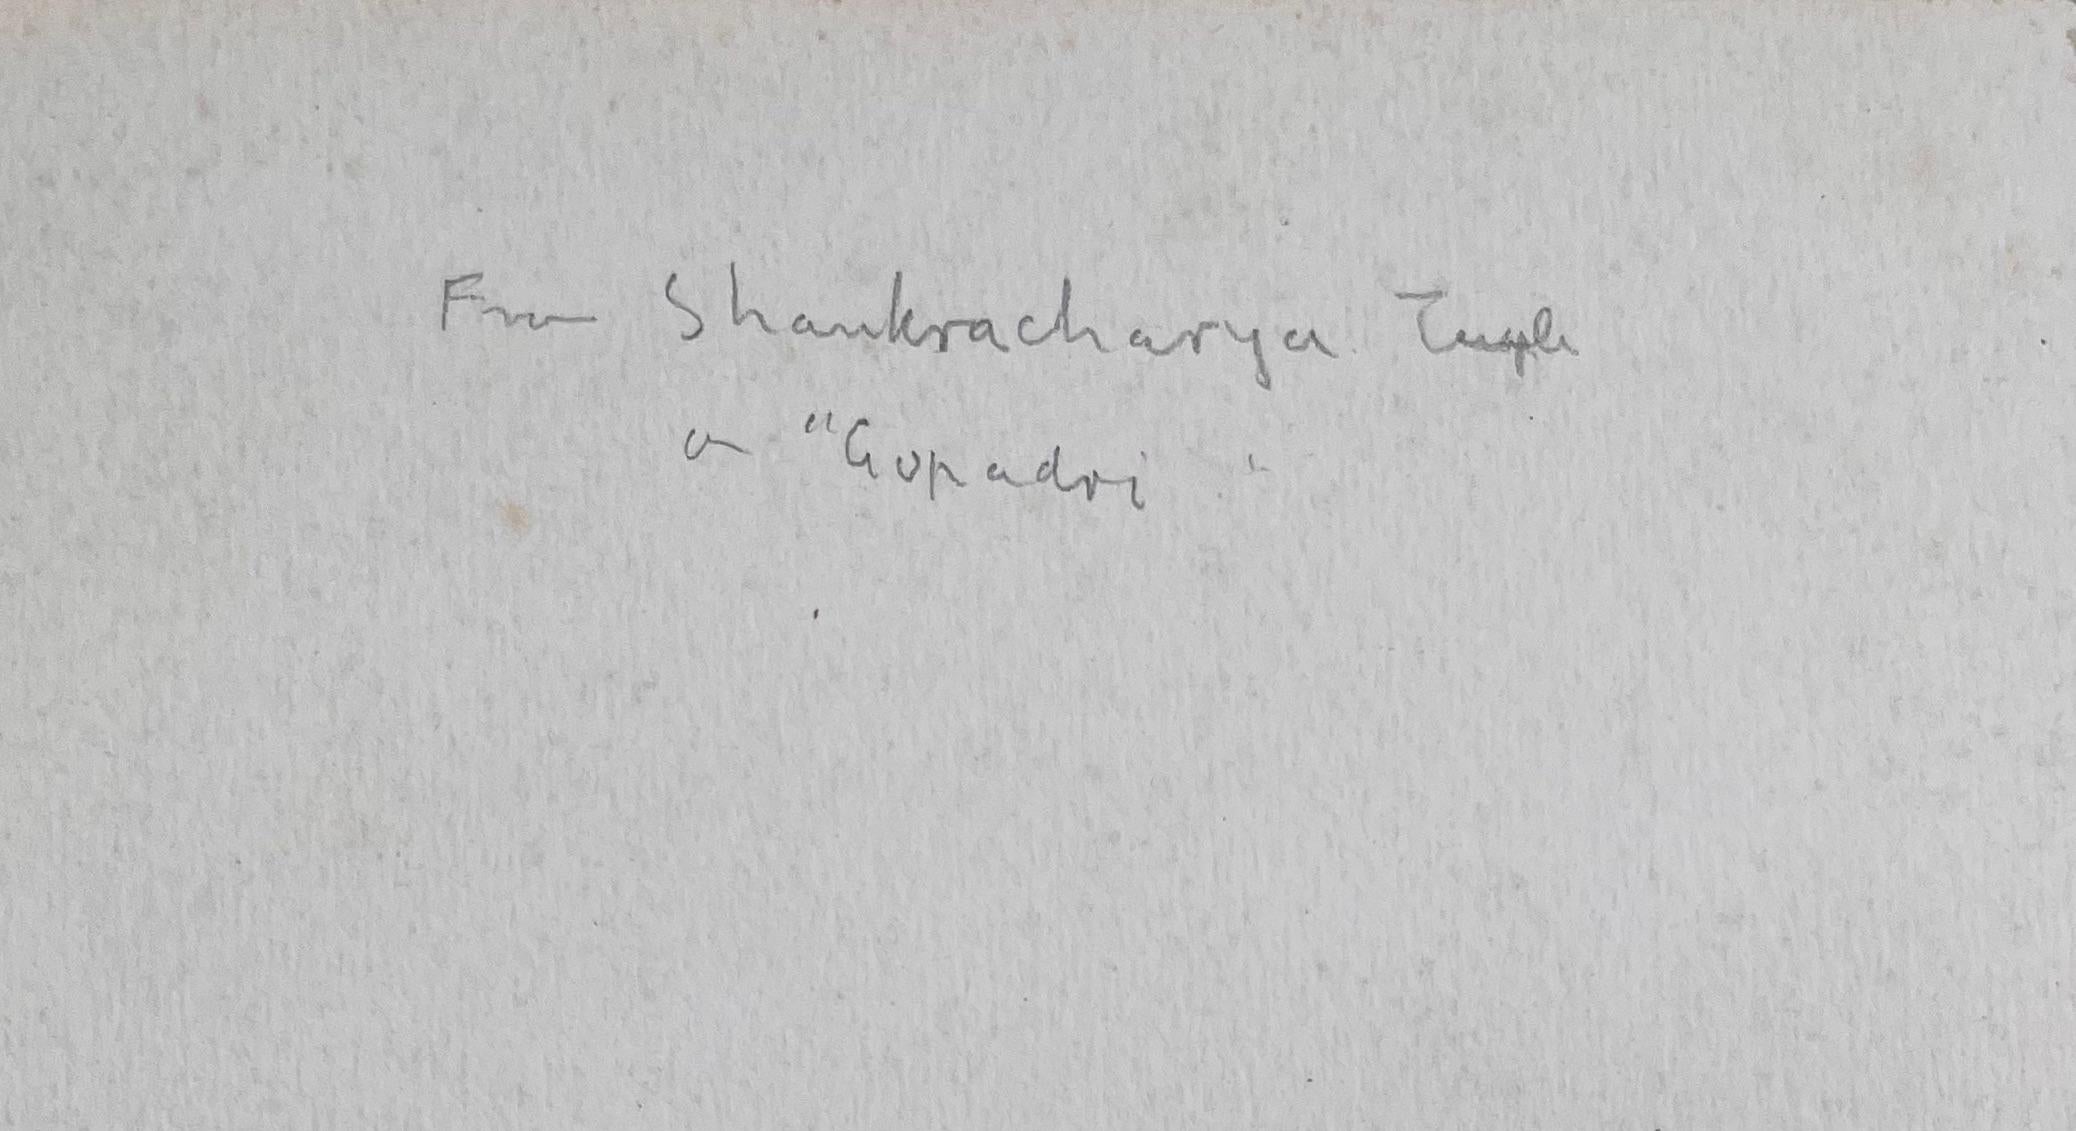 From Shankracharya Temple
on "Gopadri"